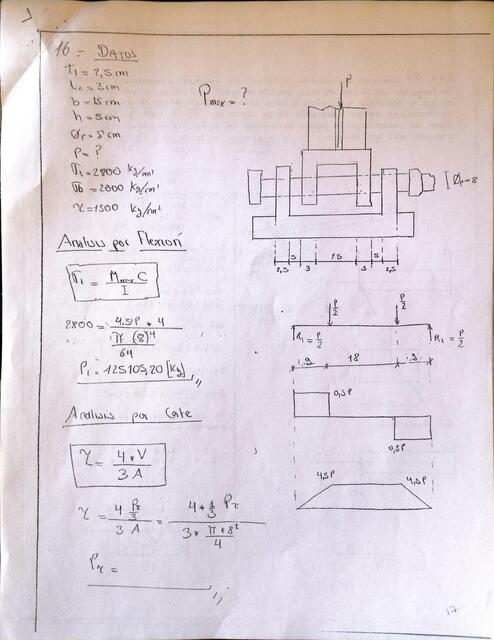 16.- DATOS
t1 = 2,5 cm
t2 = 3 cm
b = 15 cm
h = 5 cm
Øp = 8 cm
P = ?
σt = 2800 kg/cm²
σb = 2000 kg/cm²
τ = 1500 kg/cm²
Pmax = ?
P
Øp = 8
2,5 5 3 15 3 5 2,5
Analisis por Flexion
σt = Mmax C / I
2800 = 4,5P * 4 / π (8)⁴ / 64
P1 = 125105,20 [Kg]
P/2 P/2
R1 = P/2 R2 = P/2
18
0,5P
0,5P
4,5P 4,5P
Analisis por Corte
τ = 4 * V / 3 A
τ = 4 P2/3 / 3 A = 4 * 1/3 P2 / 3 * π * 8² / 4
Pτ =
17